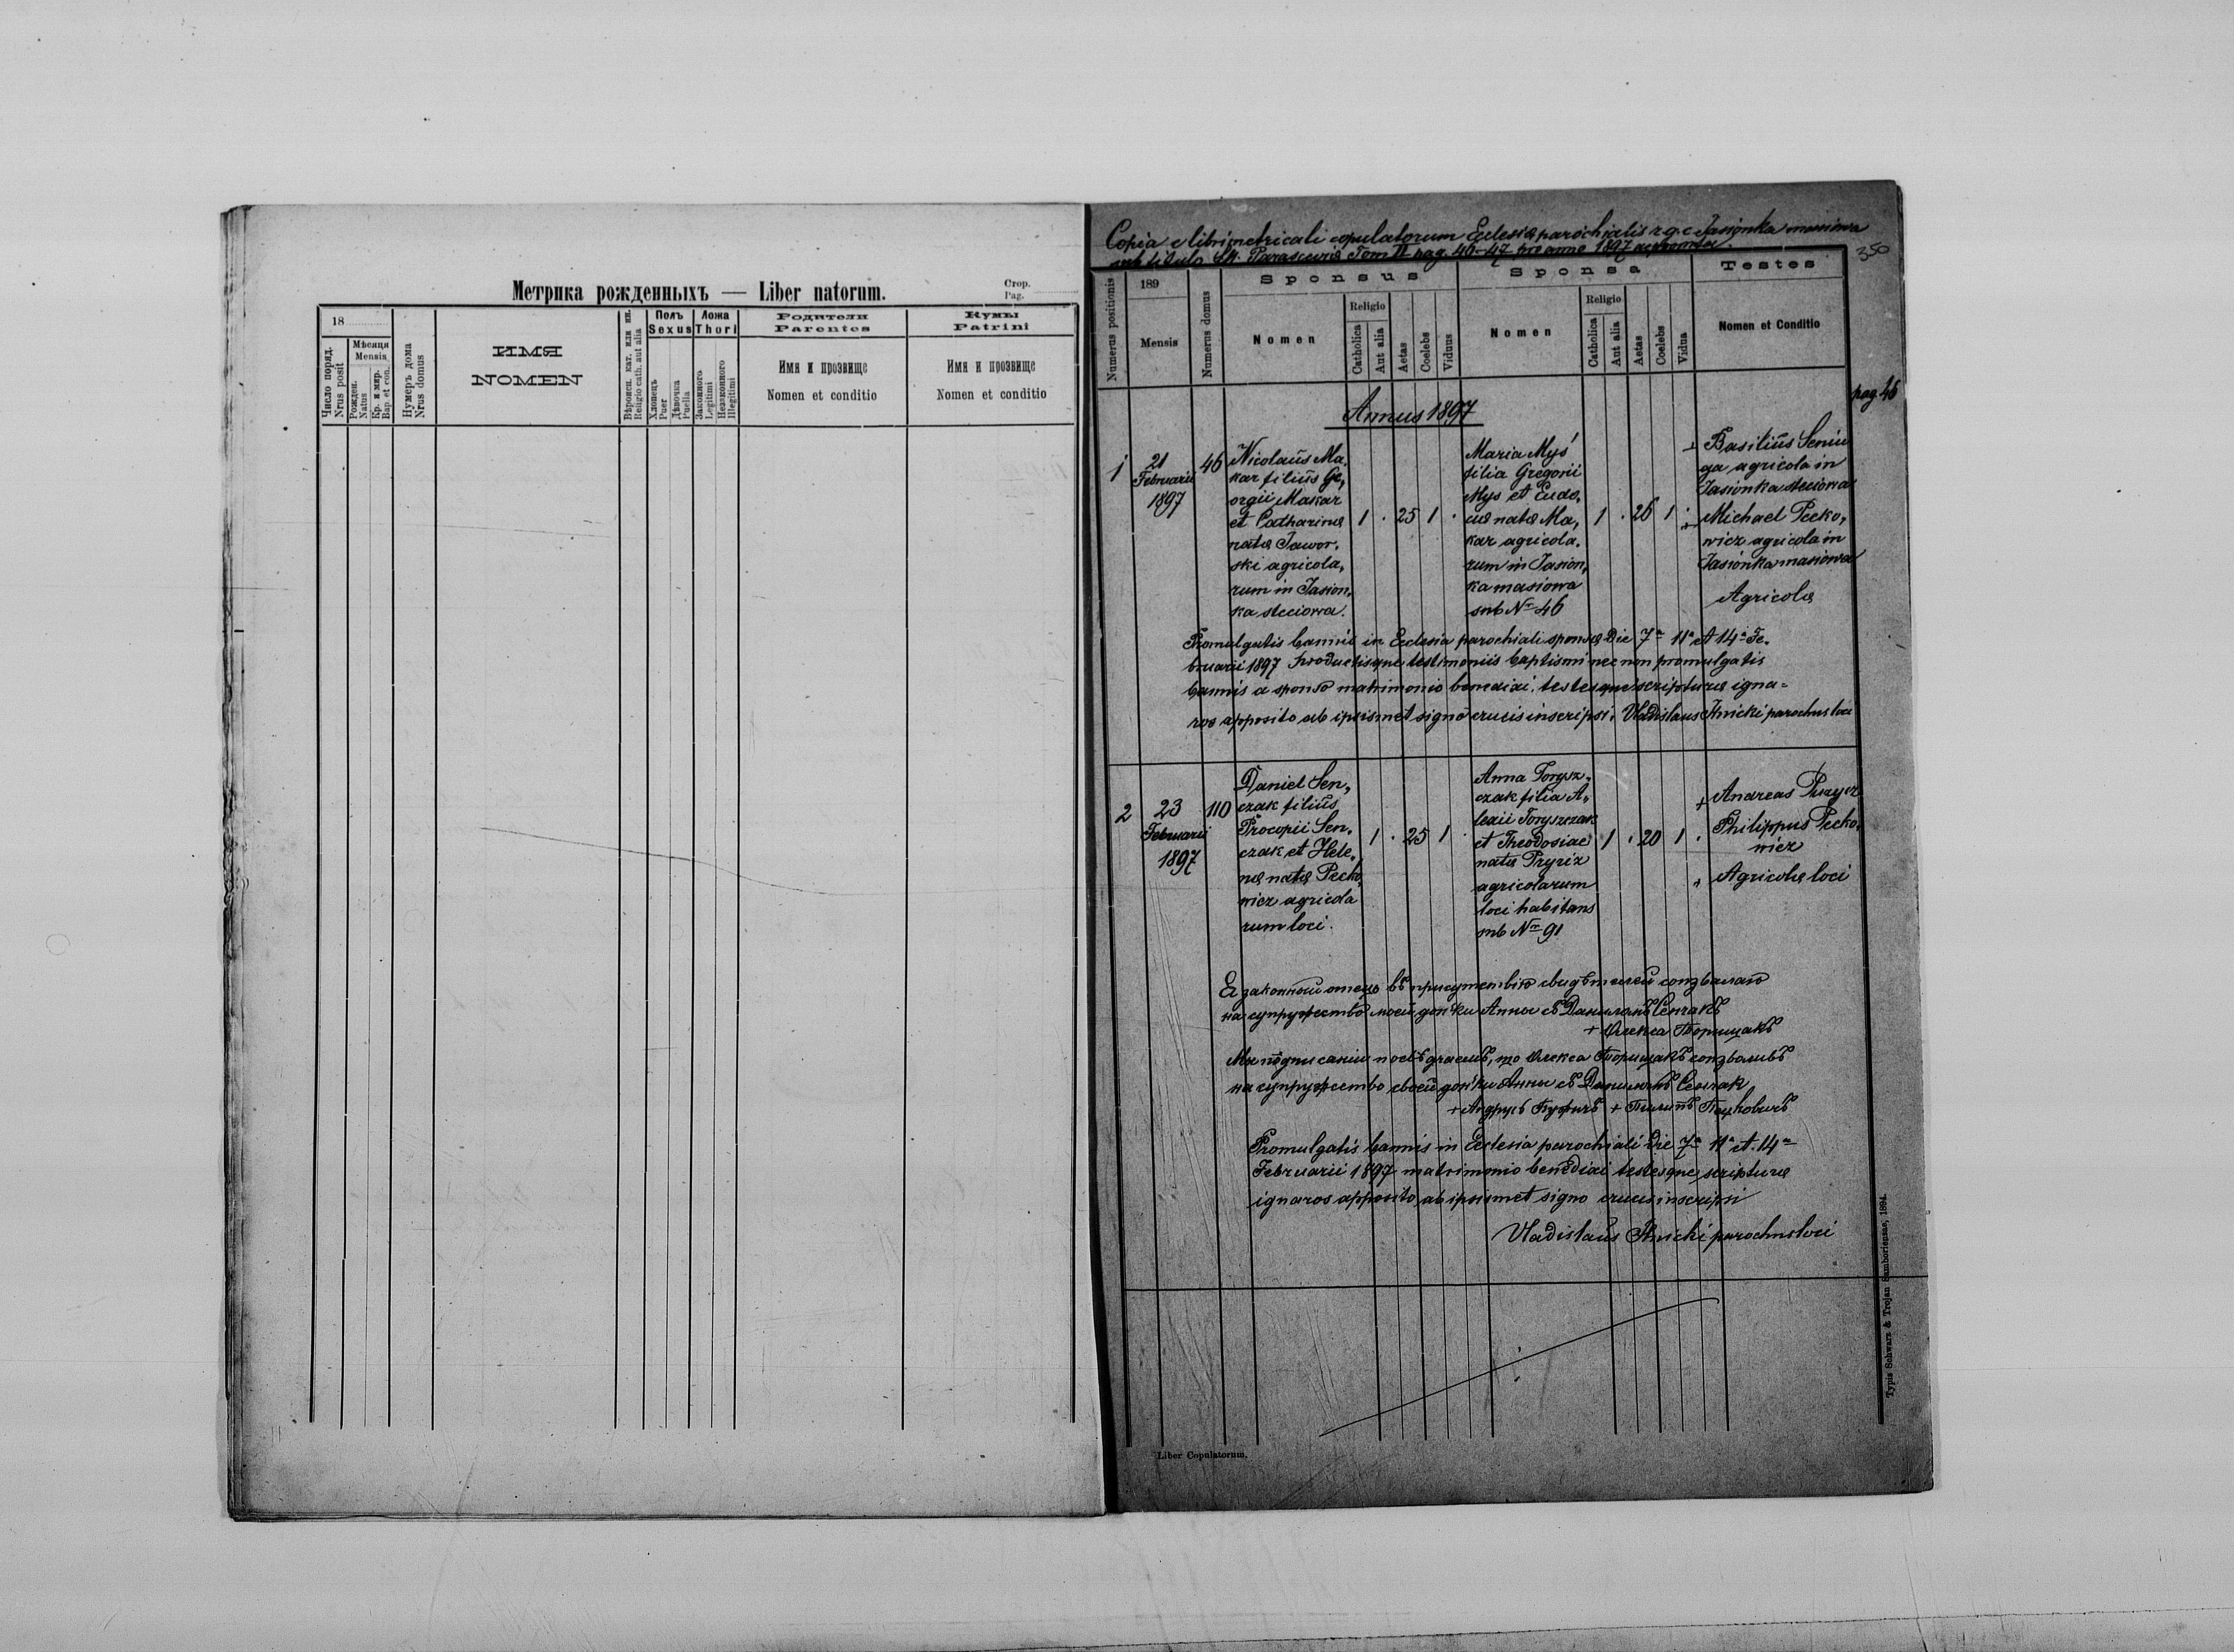 Метрика рожденныхъ — Liber natorum.
Стор.
Pag.
18
Число поряд.
Nrus posit
Мѣсяця
Mensis
Рожден.
Natus
Кр. и мир.
Bap. et con.
Нумеръ дома
Nrus domus
ИМЯ
NOMEN
Вѣроисп. кат. или ин.
Religio cath. aut alia
Полъ
Sexus
Хлопецъ
Puer
Дѣвочка
Puella
Ложа
Thori
Законного
Legitimi
Незаконного
Illegitimi
Родители
Parentes
Имя и прозвище
Nomen et conditio
Кумы
Patrini
Имя и прозвище
Nomen et conditio
Copia e libri metricali copulatorum Eclesiæ parochialis r.g.c. Jasionka masiowa
sub titulo St. Parasceviæ Tom II pag. 46-47 pro anno 1897
350
Numerus positionis
189
Mensis
Numerus domus
Sponsus
Nomen
Religio
Catholica
Aut alia
Aetas
Coelebs
Viduus
Sponsa
Nomen
Religio
Catholica
Aut alia
Aetas
Coelebs
Vidua
Testes
Nomen et Conditio
pag. 46
Annus 1897
1
21
Februarii
1897
46
Nicolaus Ma,
kar filius Ge,
orgii Makar
et Catharinæ
natæ Jawor,
ski agricola,
rum in Jasion,
ka steciowa.
1 . 25 1 .
Maria Myś
filia Gregorii
Mys et Eudo,
ciæ natæ Ma,
kar agricola,
rum in Jasion,
ka masiowa
sub Nr 46
1 . 26 1 .
+ Basilius Seniu
ga agricola in
Jasionka steciowa
+ Michael Pecko,
wicz agricola in
Jasionka masiowa
Agricolæ
Promulgatis bannis in Eclesia parochiali sponsæ die 7a 11a et 14a Fe,
bruarii 1897 productisque testimoniis baptismi nec non promulgatis
bannis a sponso matrimonio benedixi, testesque scripturæ igna=
ros apposito ab ipsismet signo crucis inscripsi. Vladislaus Ilnicki parochus loci
2
23
Februarii
1897
110
Daniel Sen,
czak filius
Procopii Sen,
czak et Hele,
næ natæ Pecko,
wicz agricola
rum loci.
1 . 25 1 .
Anna Torysz,
czak filia A,
lexii Toryszczak
et Theodosiae
natæ Pryriz
agricolarum
loci habitans
sub Nr 91
1 . 20 1 .
+ Andreas
Philippus Pecko,
wicz
" Agricolæ loci
Я законный отець въ присутствію свидѣтелей соизваляю
на супружество моей доньки Анны съ Даниломъ Сенчакъ
+ Олекса Торищакъ
Мы подписаніи посвѣдчаемъ, що Олекса Торищакъ соизваливъ
на супружество своей доньки Анны съ Даниломъ Сенчак
+ Андрусь + Пилипъ Пецковичъ
Promulgatis bannis in Eclesia parochiali die 7a 11a et 14a
Februarii 1897 matrimonio benedixi testesque scripturæ
ignaros apposito ab ipsismet signo crucis inscripsi
Vladislaus Ilnicki parochus loci
Liber Copulatorum.
Typis Schwarz & Trojan Samboriense, 1894.